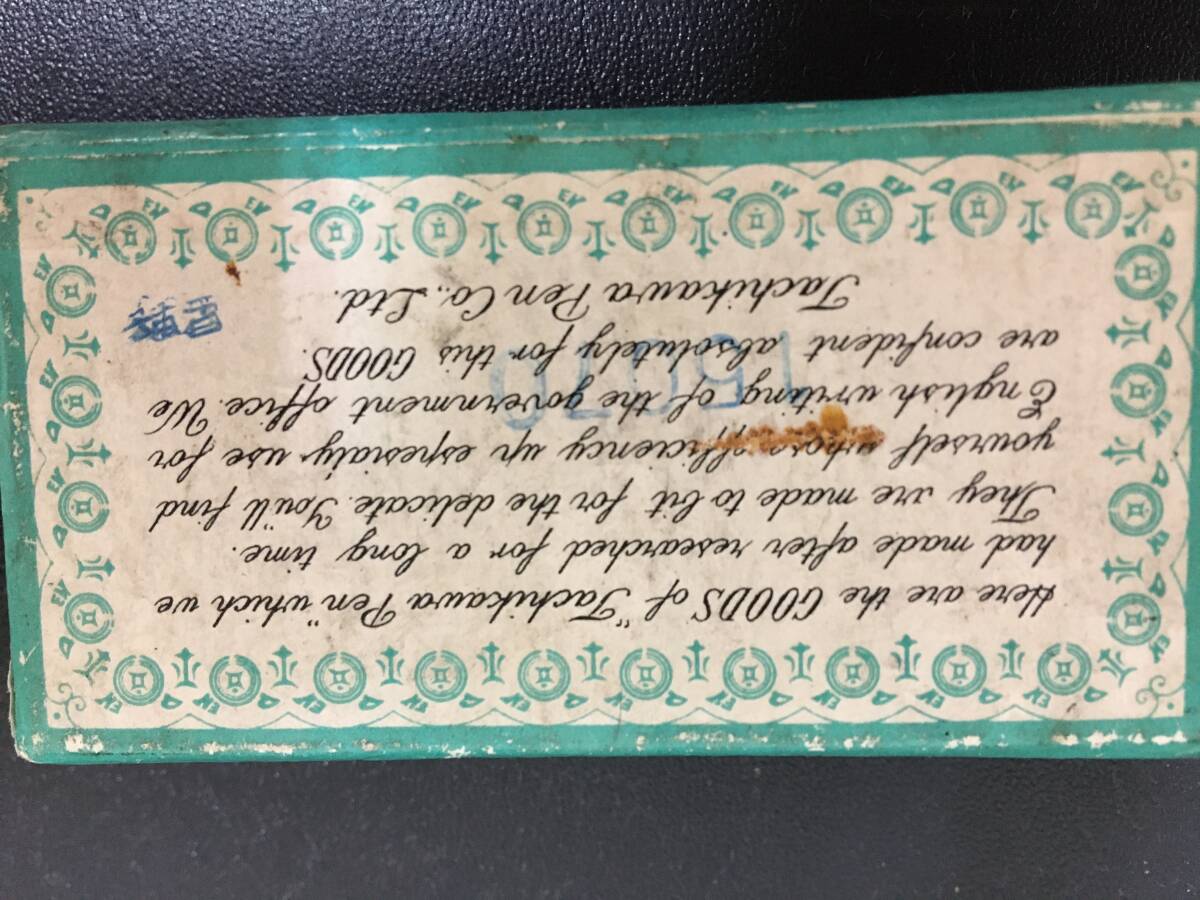 Here are the GOODS of "Tachikawa Pen" which we
had made after researched for a long time.
They are made to bit for the delicate. You'll find
yourself whose efficiency up espesialy use for
English writing of the government office. We
are confident absolutely for this GOODS.
Tachikawa Pen Co., Ltd.